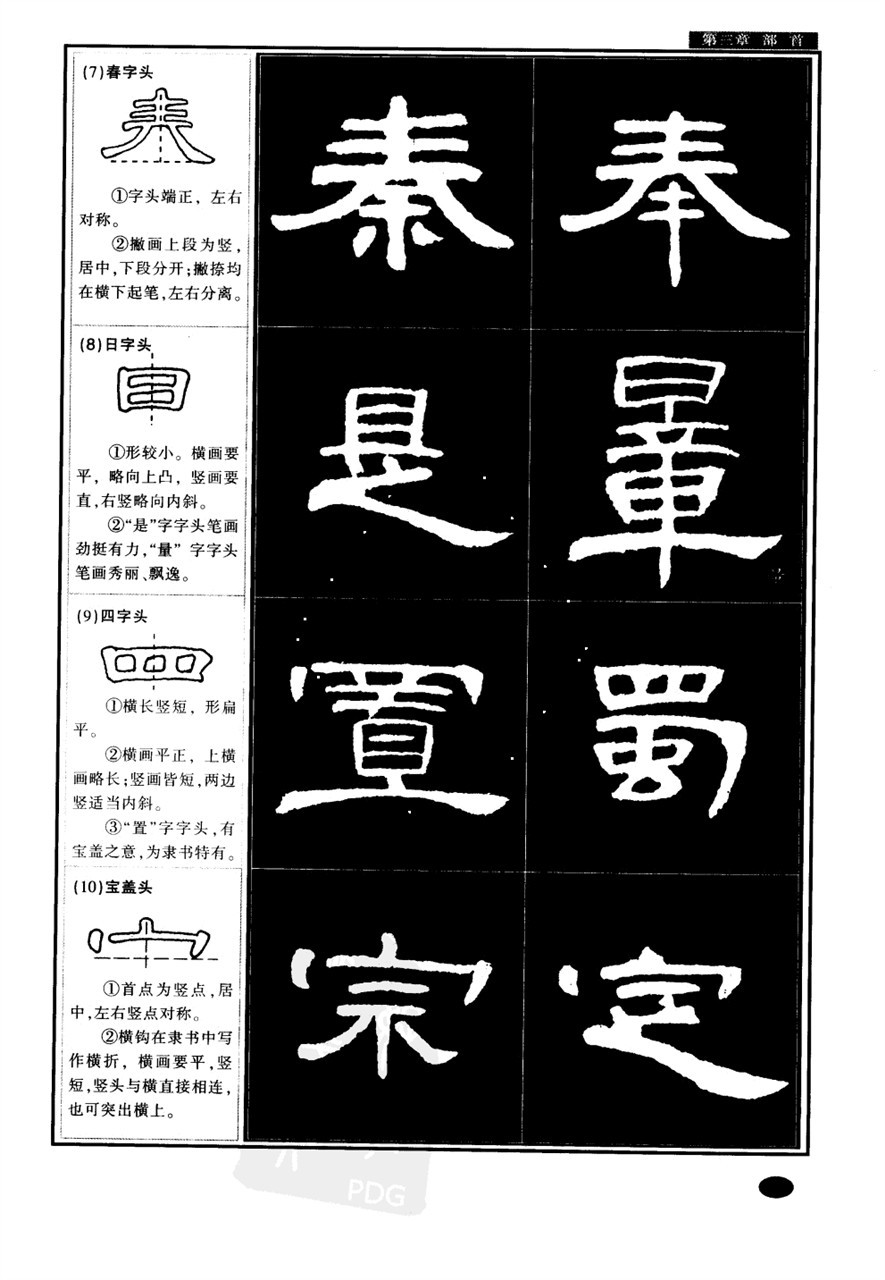 第三章 部 首
(7)春字头
①字头端正，左右
对称。
②撇画上段为竖，
居中,下段分开;撇捺均
在横下起笔,左右分离。
秦 奉
(8)日字头
①形较小。横画要
平，略向上凸，竖画要
直,右竖略向内斜。
②“是”字字头笔画
劲挺有力,“量”字字头
笔画秀丽、飘逸。
是 量
(9)四字头
①横长竖短，形扁
平。
②横画平正，上横
画略长;竖画皆短,两边
竖适当内斜。
③“置”字字头,有
宝盖之意,为隶书特有。
置 蜀
(10)宝盖头
①首点为竖点,居
中,左右竖点对称。
②横钩在隶书中写
作横折，横画要平,竖
短,竖头与横直接相连，
也可突出横上。
宗 定
PDG